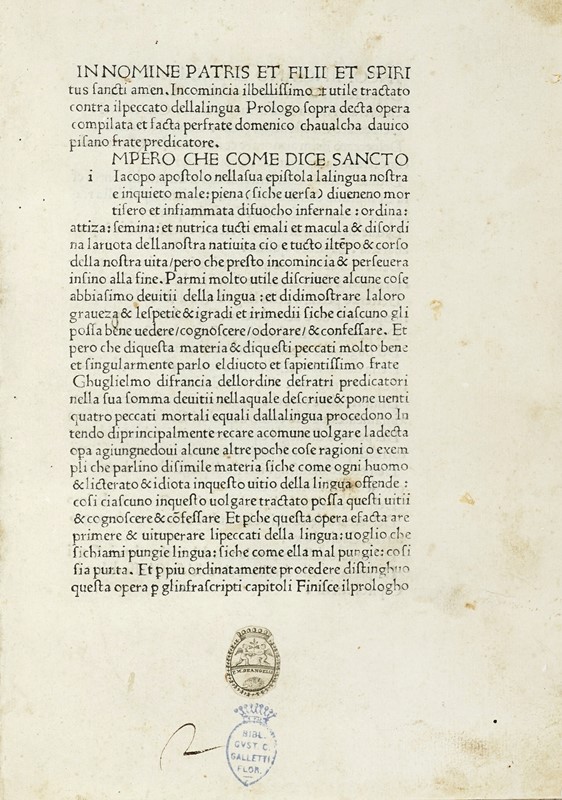 IN NOMINE PATRIS ET FILII ET SPIRI
tus ſancti amen. Incomincia ilbelliſſimo et utile tractato
contra ilpeccato dellalingua Prologo ſopra decta opera
compilata et facta perfrate domenico chaualcha dauico
piſano frate predicatore.
MPERO CHE COME DICE SANCTO
i Iacopo apoſtolo nellaſua epiſtola lalingua noſtra
e inquieto male: piena (ſiche uerſa) diueneno mor
tifero et infiammata difuocho infernale: ordina:
attiza: ſemina: et nutrica tucti emali et macula & diſordi
na laruota dellanoſtra natiuita cio e tucto iltẽpo & corſo
della noſtra uita/pero che preſto incomincia & perſeuera
inſino alla fine. Parmi molto utile diſcriuere alcune coſe
abbiaſimo deuitii della lingua: et didimoſtrare laloro
graueza & leſpetie & igradi et irimedii ſiche ciaſcuno gli
poſſa bene uedere/cognoſcere/odorare/& confeſſare. Et
pero che diqueſta materia & diqueſti peccati molto bene
et ſingularmente parlo eldiuoto et ſapientiſſimo frate
Ghuglielmo difrancia dellordine defratri predicatori
nella ſua ſomma deuitii nellaquale deſcriue & pone uenti
quatro peccati mortali equali dallalingua procedono In
tendo diprincipalmente recare acomune uolgare ladecta
opa agiungnedoui alcune altre poche coſe ragioni o exem
pli che parlino diſimile materia ſiche come ogni huomo
& licterato & idiota inqueſto uitio della lingua offende:
coſi ciaſcuno inqueſto uolgare tractato poſſa queſti uitii
& cognoſcere & cõfeſſare Et pche queſta opera efacta are
primere & uituperare lipeccati della lingua: uoglio che
ſichiami pungie lingua: ſiche come ella mal pungie: coſi
ſia punta. Et p piu ordinatamente procedere diſtinghuo
queſta opera p glinfraſcripti capitoli Finiſce ilprologho
BIBL.
GVST. C.
GALLETTI
FLOR.